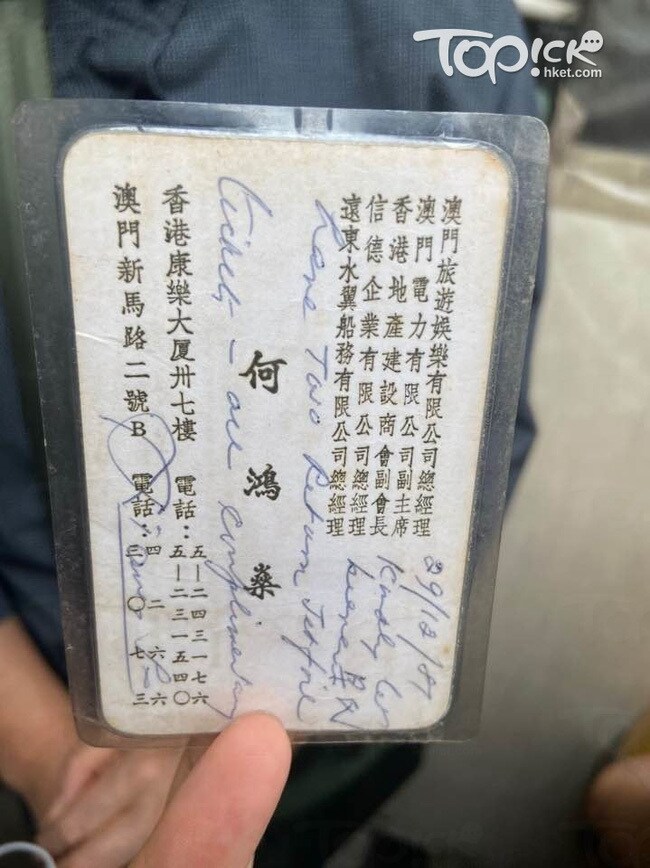 TOPICK
hket.com
澳門旅遊娛樂有限公司總經理
澳門電力有限公司副主席
香港地產建設商會副會長
信德企業有限公司總經理
遠東水翼船務有限公司總經理
何鴻燊
香港康樂大厦卅七樓 電話：五—二四三一七六
五—二三一五四〇
澳門新馬路二號B 電話：四二六六
三〇七三
Kindly let
bearer
have two return Jetfoil
tickets - all complimentary